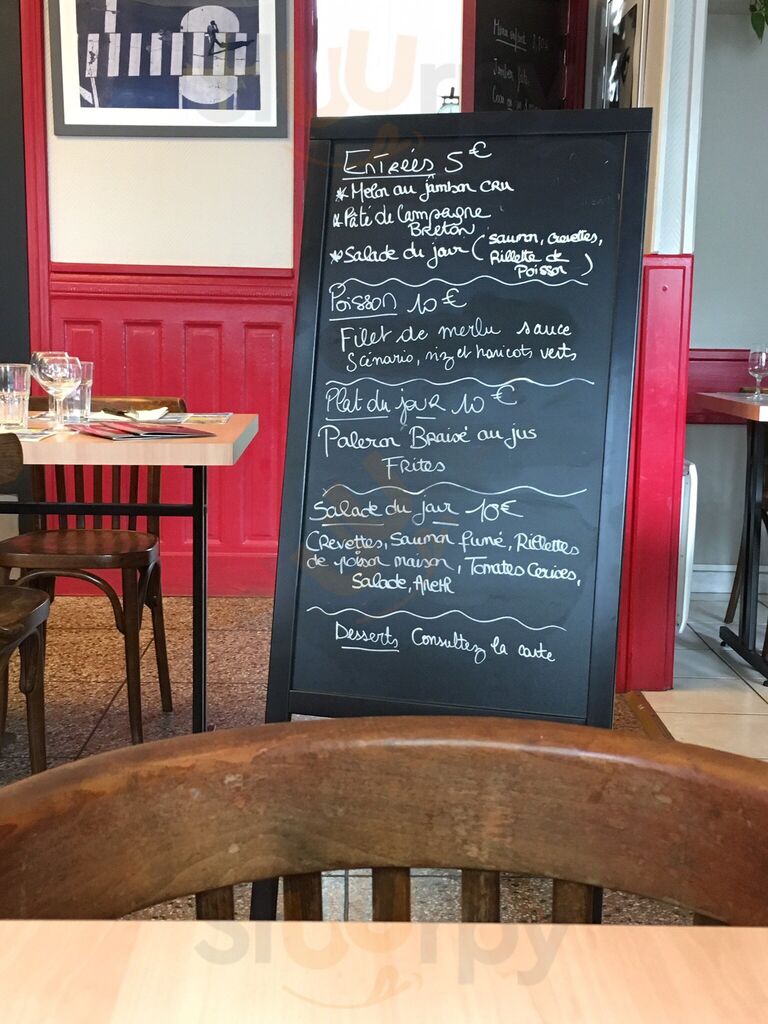 Menu enfant
Entrées 5€
* Melon au jambon cru
* Pâté de Campagne
Breton
* Salade du jour (saumon, crevettes,
Rillette de
Poisson)
Poisson 10€
Filet de merlu sauce
Scénario, riz et haricots verts
Plat du jour 10€
Paleron Braisé au jus
Frites
Salade du jour 10€
Crevettes, Saumon fumé, Rillettes
de poisson maison, Tomates Cerises,
Salade, Aneth
Desserts Consultez la carte
Sluurpy